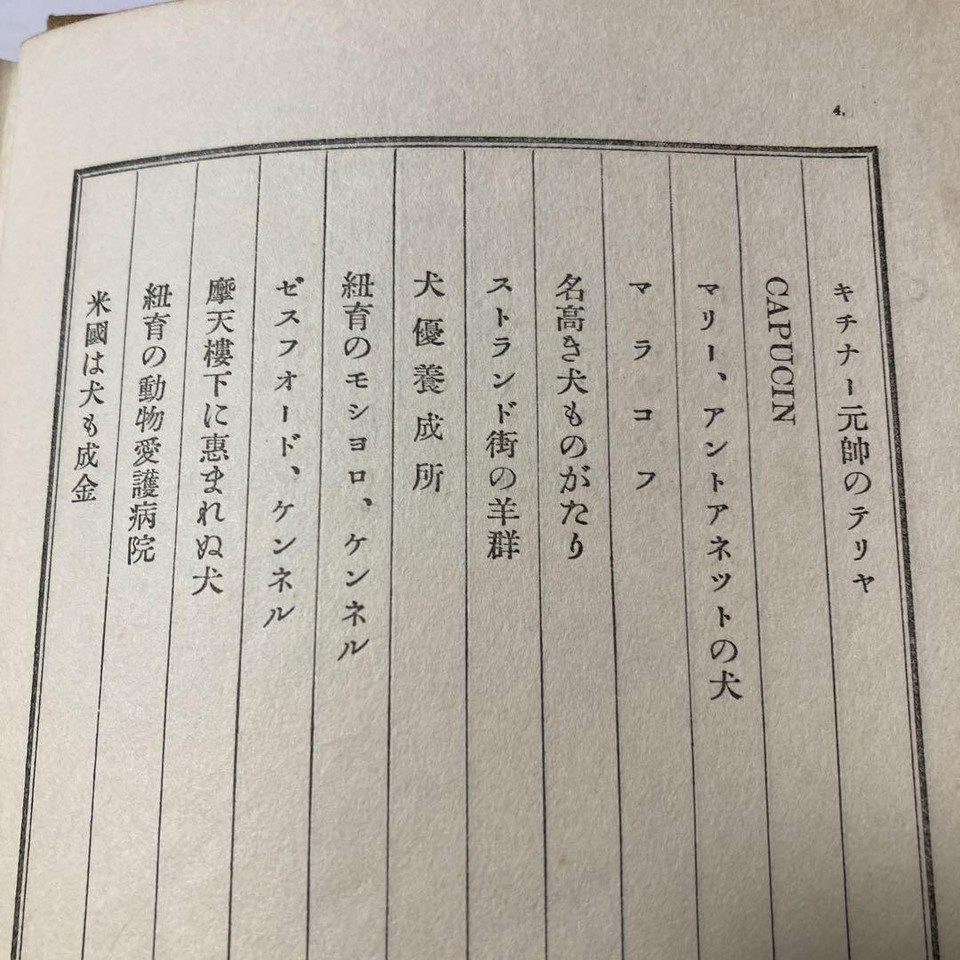 4.
キチナー元帥のテリヤ
CAPUCIN
マリー、アントアネットの犬
マラコフ
名高き犬ものがたり
ストランド街の羊群
犬優養成所
紐育のモシヨロ、ケンネル
ゼスフオード、ケンネル
摩天樓下に惠まれぬ犬
紐育の動物愛護病院
米國は犬も成金